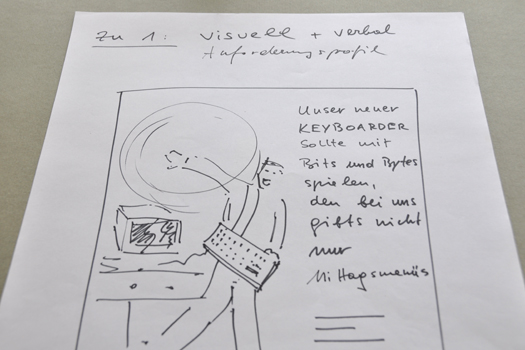 Zu 1: visuell + verbal
Anforderungsprofil
Unser neuer
KEYBOARDER
sollte mit
Bits und Bytes
spielen,
den bei uns
gibts nicht
nur
Mittagsmenüs